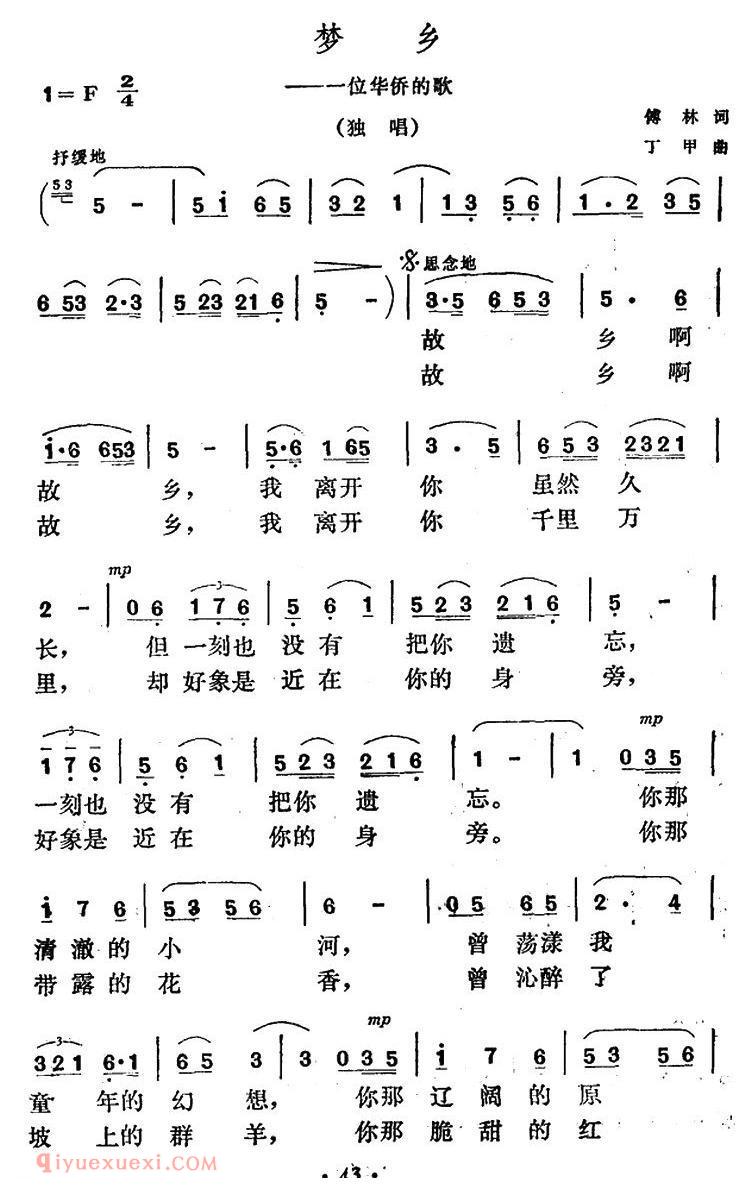 梦 乡
1=F 2/4
——一位华侨的歌
(独 唱)
傅 林 词
丁 甲 曲
抒缓地
(53 5 - | 5i 65 | 32 1 | 13 56 | 1·2 35 |
6 53 2·3 | 5 23 21 6 | 5 -) | 3·5 653 | 5· 6 |
思念地
故 乡 啊
故 乡 啊
i·6 653 | 5 - | 5·6 1 65 | 3· 5 | 653 2321 |
故 乡, 我 离开 你 虽然 久
故 乡, 我 离开 你 千里 万
mp
2 - | 06 176 | 5 6 1 | 523 216 | 5 - |
长, 但 一刻也 没 有 把你 遗 忘,
里, 却 好象是 近 在 你的 身 旁,
mp
176 | 5 6 1 | 523 216 | 1 - | 1 035 |
一刻也 没 有 把你 遗 忘。 你那
好象是 近 在 你的 身 旁。 你那
i 7 6 | 53 56 | 6 - | 05 65 | 2· 4 |
清 澈 的 小 河, 曾 荡漾 我
带 露 的 花 香, 曾 沁醉 了
mp
321 6·1 | 65 3 | 3 035 | i 7 6 | 53 56 |
童 年的 幻 想, 你那 辽 阔 的 原
坡 上的 群 羊, 你那 脆 甜 的 红
qiyuexuexi.com
·43·